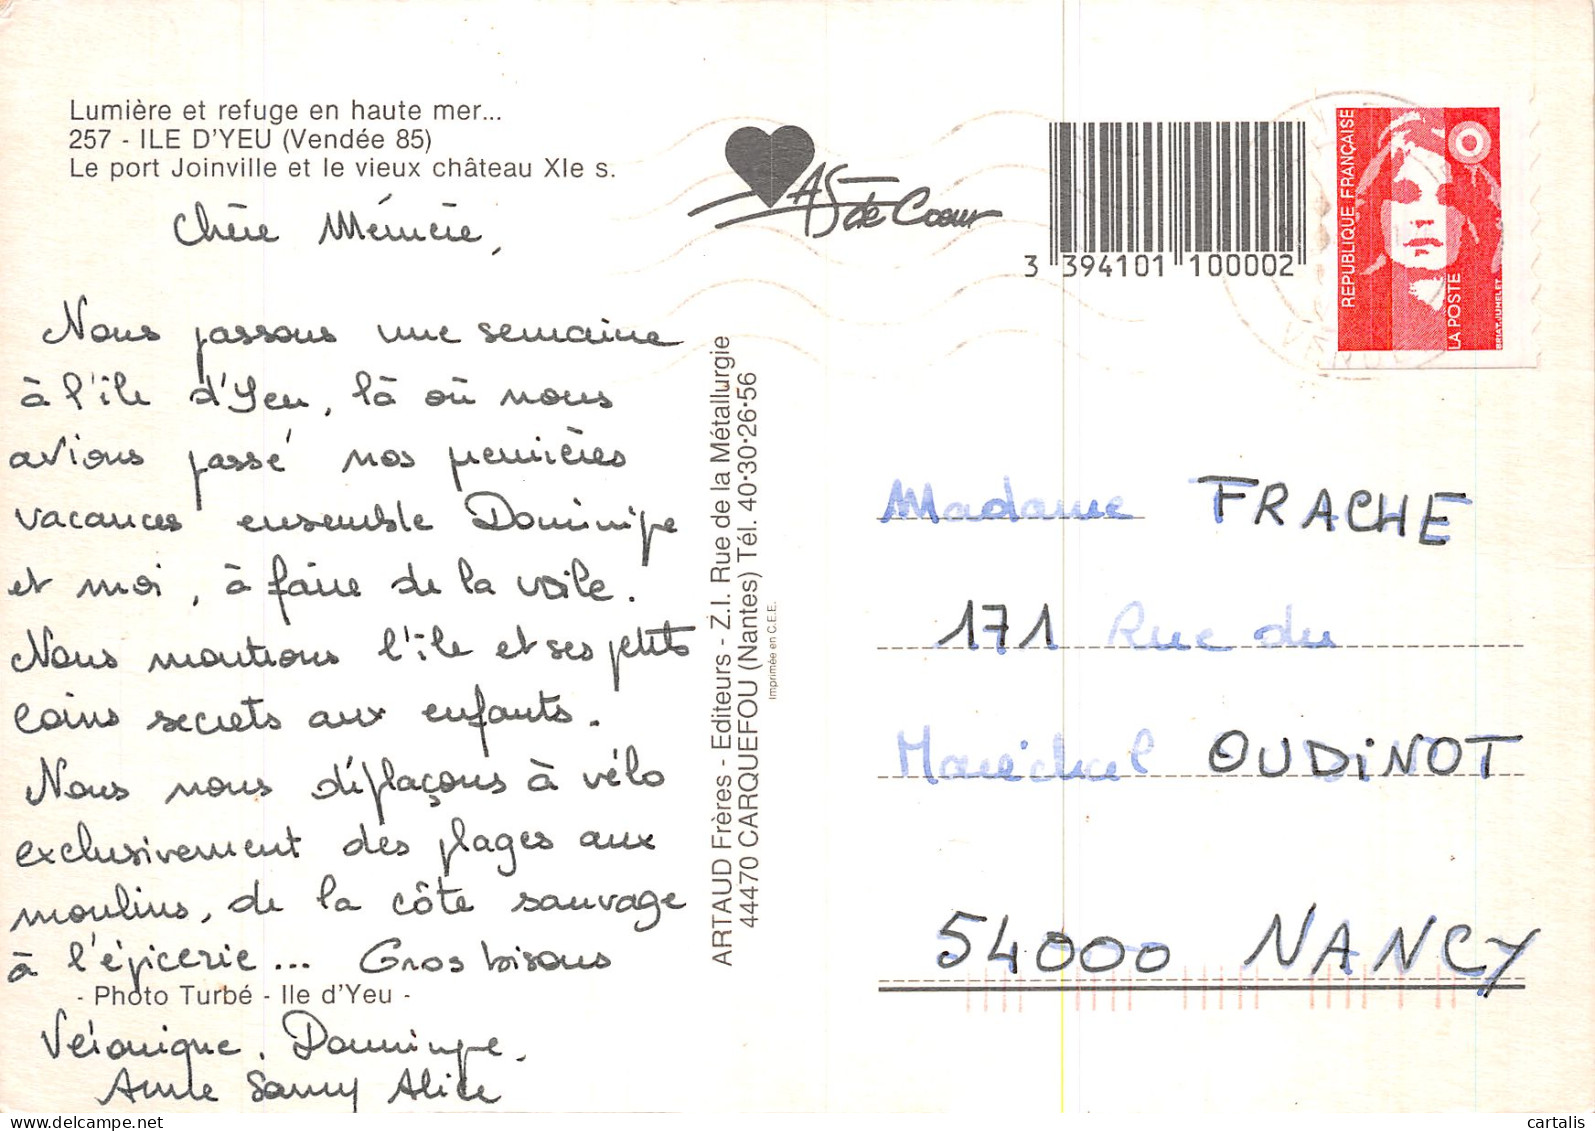 Lumière et refuge en haute mer...
257 - ILE D'YEU (Vendée 85)
Le port Joinville et le vieux château XIe s.
Chère Mémère,
Nous passons une semaine
à l'île d'Yeu, là où nous
avions passé nos premières
vacances ensemble Dominique
et moi, à faire de la voile.
Nous montrons l'île et ses petits
coins secrets aux enfants.
Nous nous déplaçons à vélo
exclusivement des plages aux
moulins, de la côte sauvage
à l'épicerie... Gros bisous
- Photo Turbé - Ile d'Yeu -
Véronique, Dominique,
Anne Samy Alice
ARTAUD Frères - Editeurs - Z.I. Rue de la Métallurgie
44470 CARQUEFOU (Nantes) Tél. 40·30·26·56
Imprimée en C.E.E.
AS de Coeur
3 394101 100002
REPUBLIQUE FRANÇAISE
LA POSTE
BRIAT-JUMELET
Madame FRACHE
171 Rue du
Maréchal OUDINOT
54000 NANCY
© cartalis
www.delcampe.net